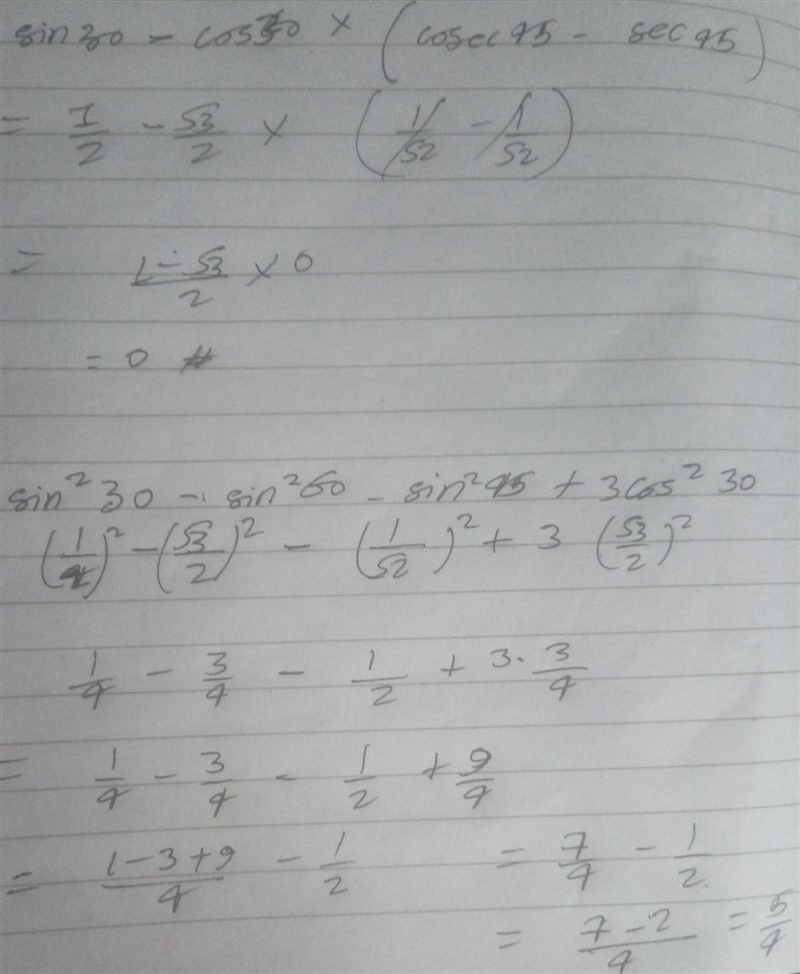 sin 30 - cos 30 × (cosec 45 - sec 45)
= 1/2 - √3/2 × (1/√2 - 1/√2)
= 1-√3/2 × 0
= 0 #
sin² 30 - sin² 60 - sin² 45 + 3cos² 30
(1/2)² - (√3/2)² - (1/√2)² + 3 (√3/2)²
1/4 - 3/4 - 1/2 + 3·3/4
= 1/4 - 3/4 - 1/2 + 9/4
= 1-3+9/4 - 1/2 = 7/4 - 1/2
= 7-2/4 = 5/4